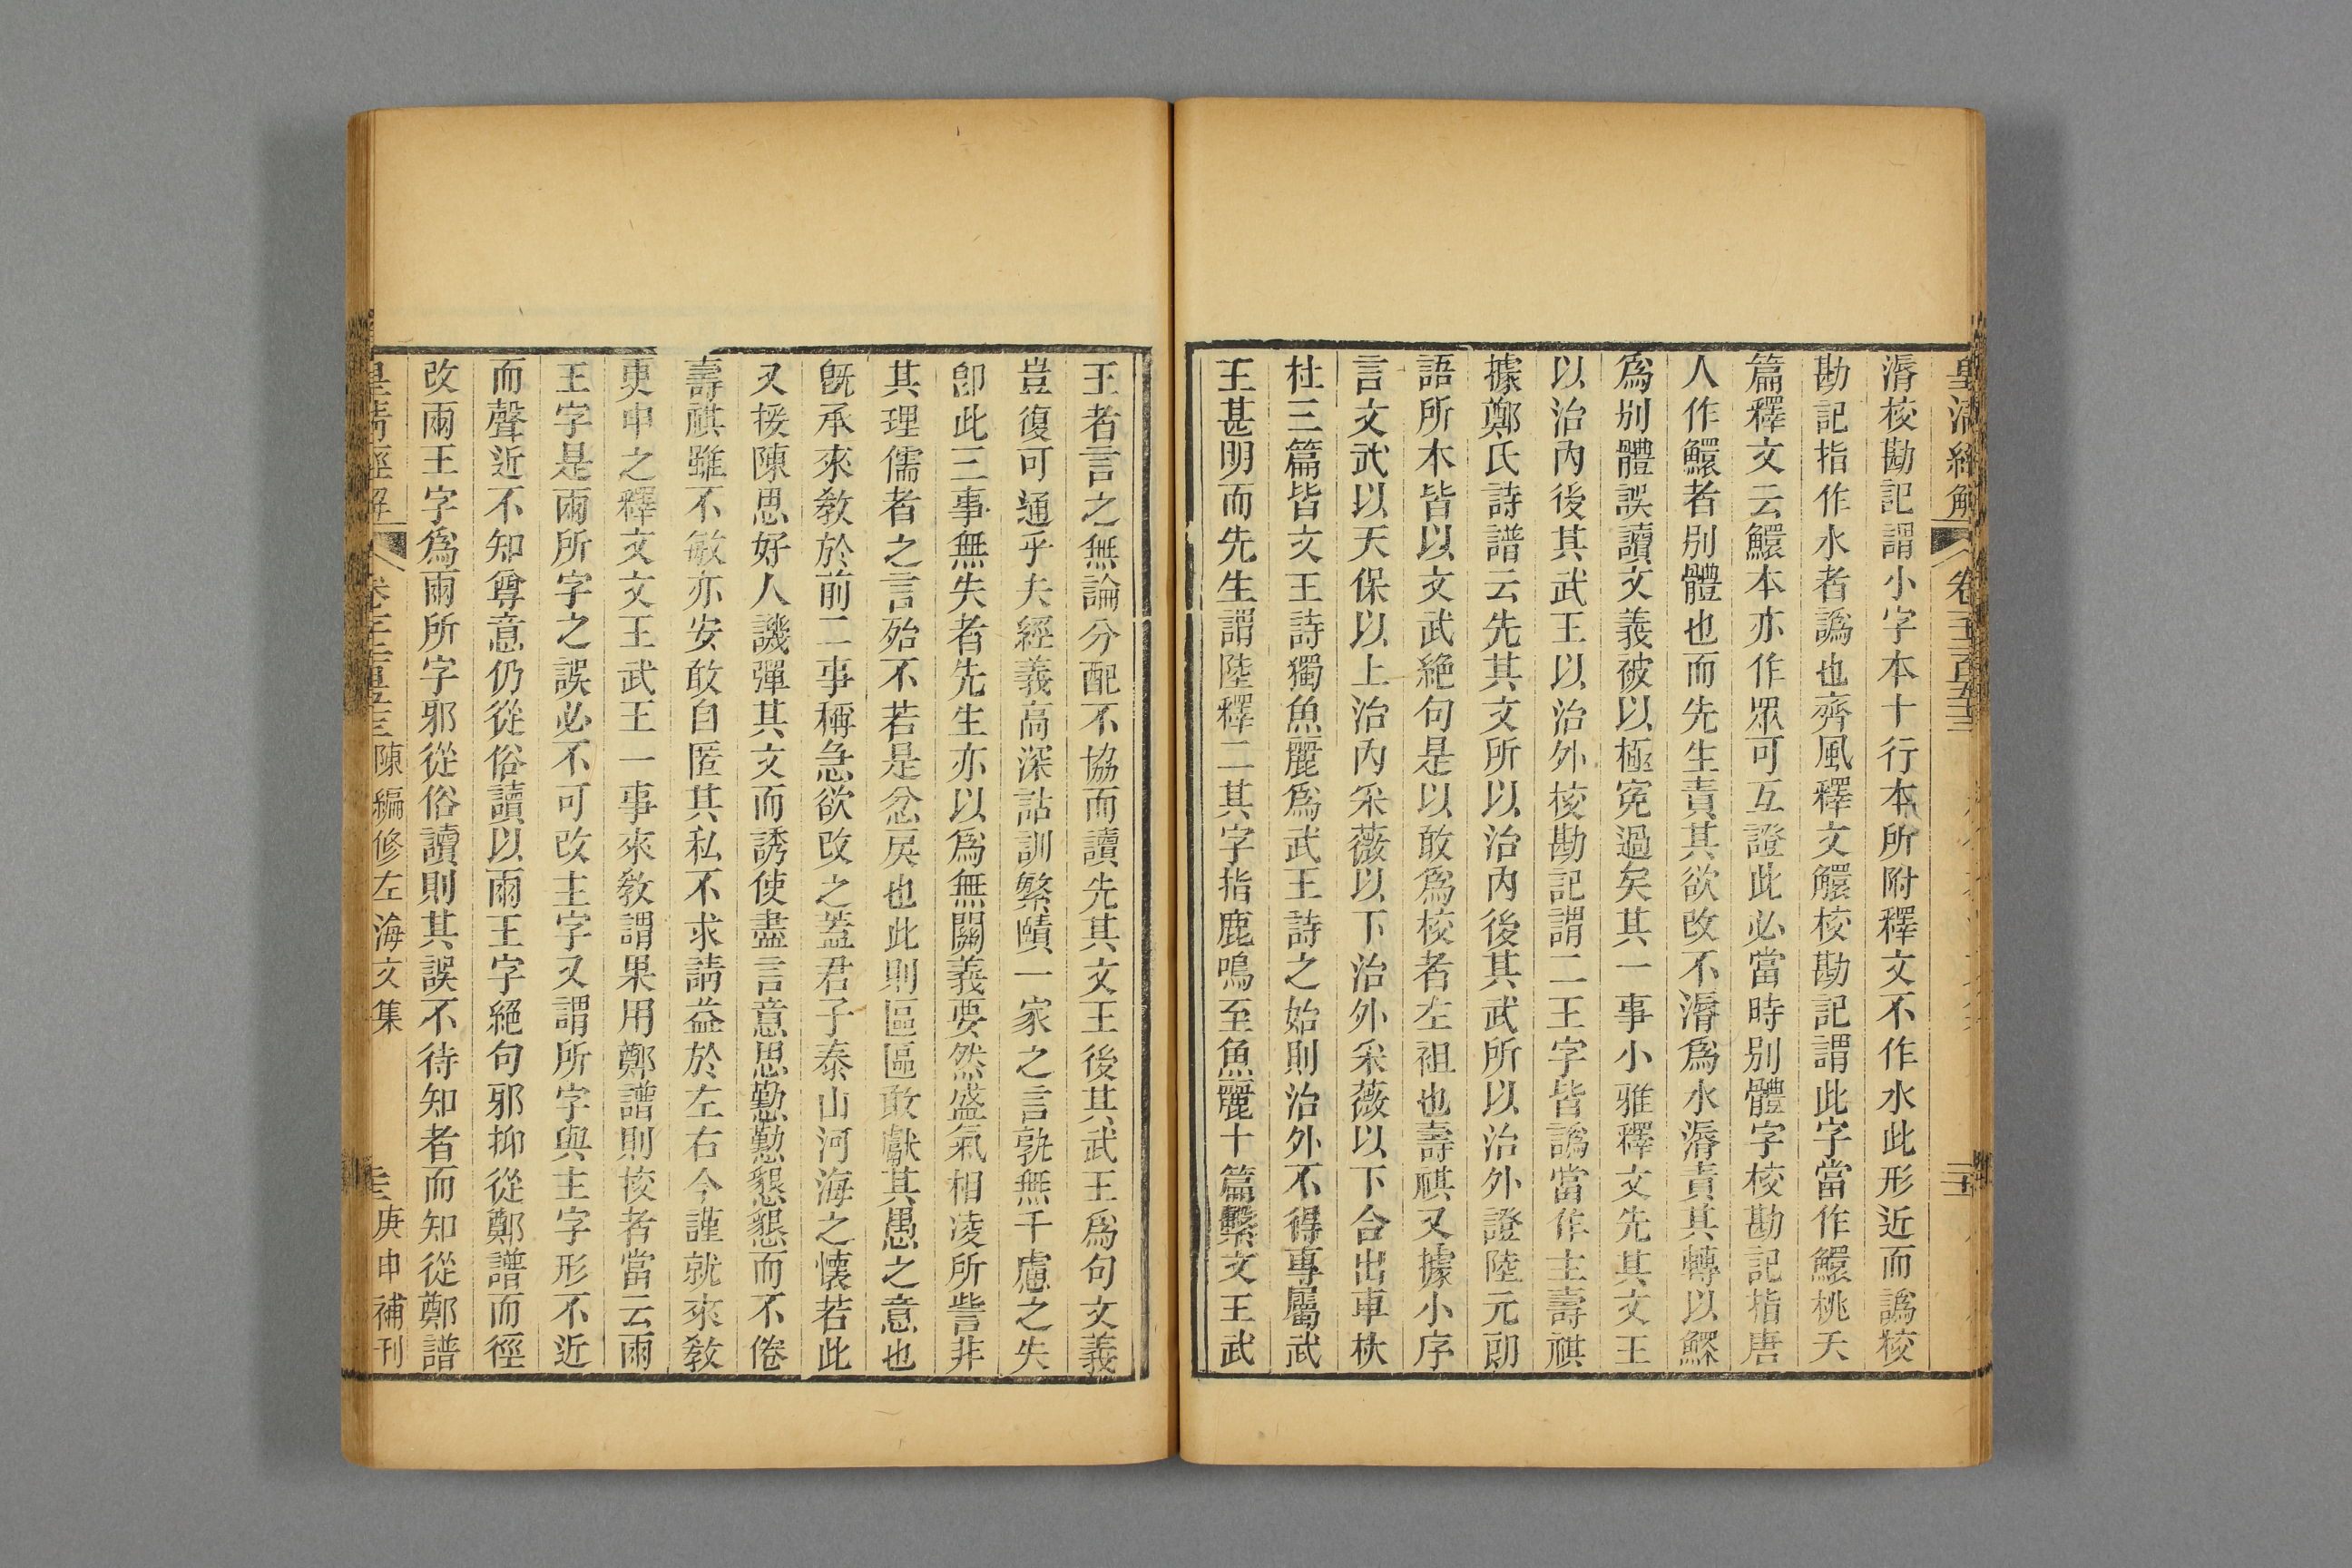 皇清經解 卷千二百五十三 二十
漘校勘記謂小字本十行本所附釋文不作水此形近而譌校
勘記指作水者譌也齊風釋文鰥校勘記謂此字當作鰥桃夭
篇釋文云鰥本亦作眔可互證此必當時別體字校勘記指唐
人作鰥者別體也而先生責其欲改不漘爲水漘責其轉以鰥
爲別體誤讀文義被以極寃過矣其一事小雅釋文先其文王
以治內後其武王以治外校勘記謂二王字皆譌當作主壽祺
據鄭氏詩譜云先其文所以治內後其武所以治外證陸元朗
語所本皆以文武絕句是以敢爲校者左袒也壽祺又據小序
言文武以天保以上治內采薇以下治外采薇以下合出車杕
杜三篇皆文王詩獨魚麗爲武王詩之始則治外不得專屬武
王甚明而先生謂陸釋二其字指鹿鳴至魚麗十篇繫文王武
王者言之無論分配不協而讀先其文王後其武王爲句文義
豈復可通乎夫經義高深詁訓繁賾一家之言孰無千慮之失
卽此三事無失者先生亦以爲無關義要然盛氣相凌所訾非
其理儒者之言殆不若是忿戾也此則區區敢獻其愚之意也
旣承來敎於前二事稱急欲改之蓋君子泰山河海之懷若此
又援陳思好人譏彈其文而誘使盡言意思懃懃懇懇而不倦
壽祺雖不敏亦安敢自匿其私不求請益於左右今謹就來敎
更申之釋文文王武王一事來敎謂果用鄭譜則校者當云兩
王字是兩所字之誤必不可改主字又謂所字與主字形不近
而聲近不知尊意仍從俗讀以兩王字絕句邪抑從鄭譜而徑
改兩王字爲兩所字邪從俗讀則其誤不待知者而知從鄭譜
皇清經解 卷千二百五十三 陳編修左海文集 二十 庚申補刊